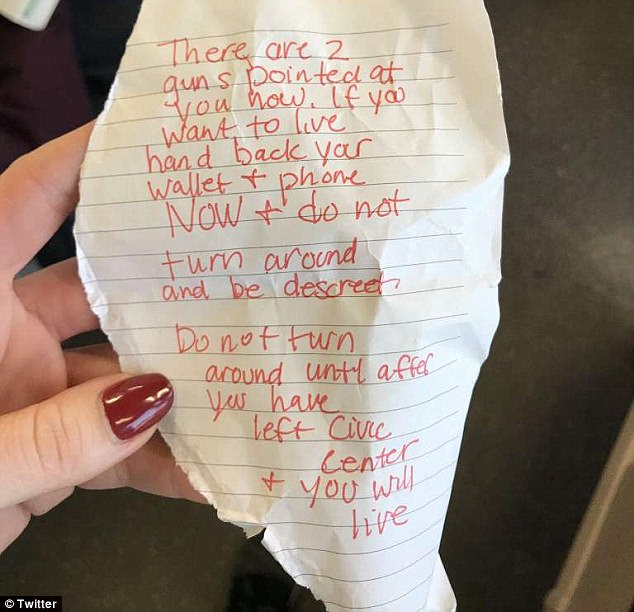 There are 2
guns pointed at
you now. If you
want to live
hand back your
wallet + phone
NOW + do not
turn around
and be descreet
Do not turn
around until after
you have
left Civic
Center
+ you will
live
© Twitter